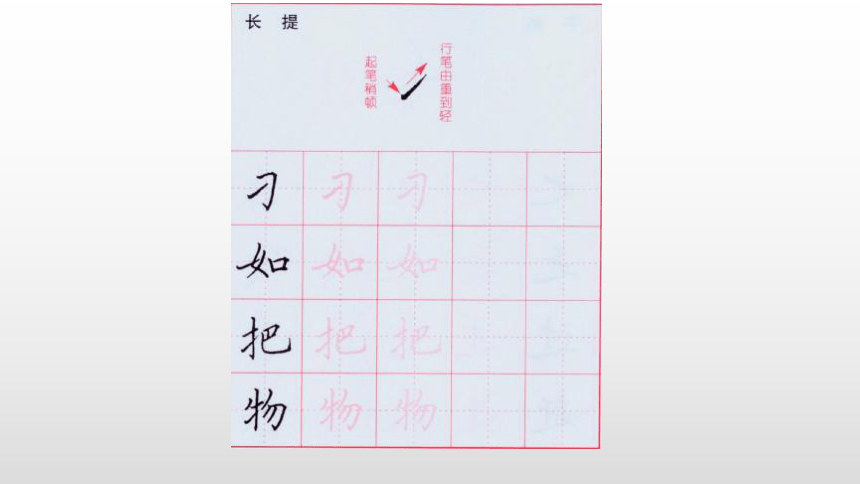 长 提
起笔稍顿
行笔由重到轻
刁 刁 刁
如 如 如
把 把 把
物 物 物